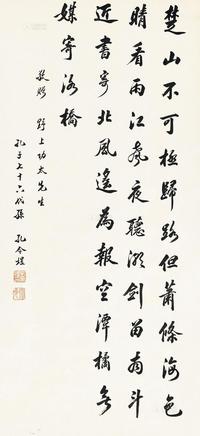 楚山不可極歸路但蕭條海色
晴看雨江聲夜聽潮劍留南斗
近書寄北風遙為報空潭橘無
媒寄洛橋
野上功太先生
孔子七十六代孫 孔令